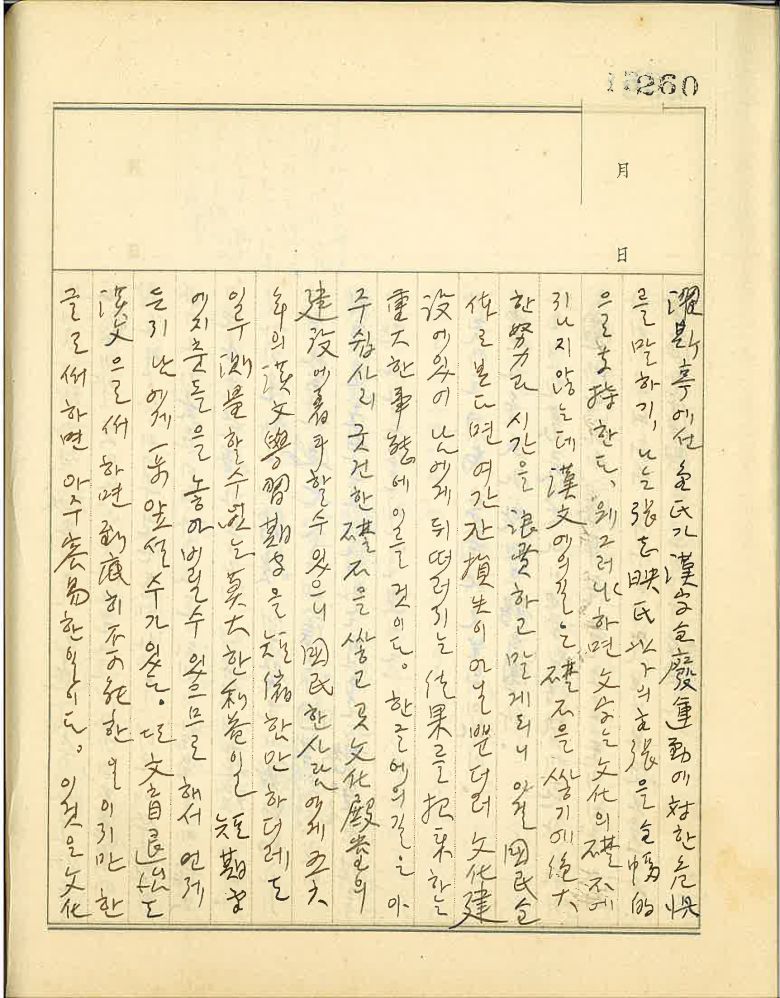 260
月
日
濯斯亭에선 金氏가 漢字全廢運動에 對한
를 말하기, 나는 張志暎氏 의 主張을 全幅的
으로 支持한다. 왜그러냐하면 文字는 文化의 礎石에
지나지 않는데 漢文에의 길은 礎石을 쌓기에 絶大
한 努力과 시간을 浪費하고 말게되니 國民全
体로 본다면 여간 損失이 아닐뿐더러 文化建
設에있어 남에게 뒤떨어지는 結果를 招来하는
重大한 事態에 이를 것이다. 한글에의 길은 아
주 쉽사리 굳건한 礎石을 쌓고 곳 文化殿堂의
建設에 着手할수 있으니 國民 한사람에게
年의 漢文學習期을 短縮한만 하더래도
일우 測量할수없는 莫大한 利益일 短期
에 을 놓아버릴수 있으므로 해서 언제
든지 남에게 앞설수가 있다. 또 文盲退治도
漢文으로써 하면 到底히 不可能한 일이지만 한
글로써 하면 아주 容易한일이다. 이것은 文化